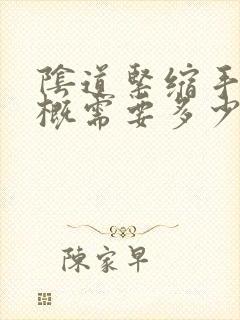 陰道緊縮手
概需要多少
陳家早